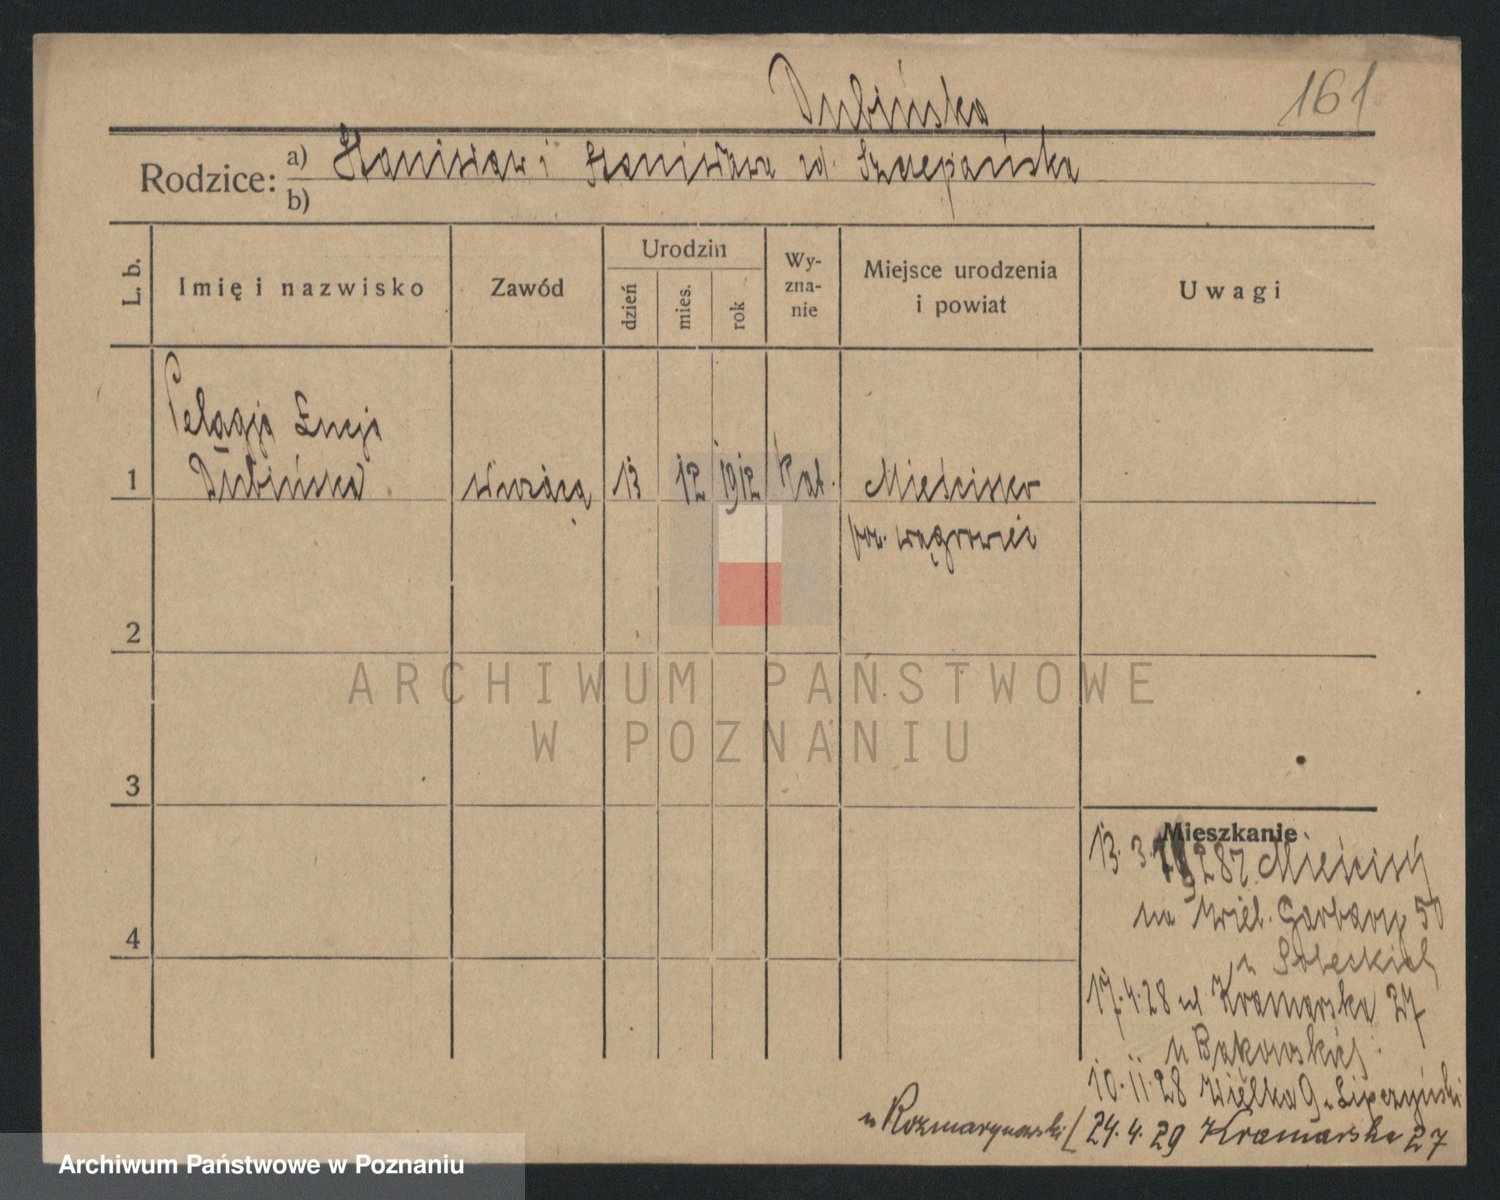 Dubińska
161
Rodzice: a) Stanisław i Stanisława zd. Szczepańska
b)
L. b.
Imię i nazwisko
Zawód
Urodzin
dzień
mies.
rok
Wy-
zna-
nie
Miejsce urodzenia
i powiat
Uwagi
Pelagja Łucja
1 Dubińska służąca 13 12 1912 kat. Mieścisko
pow. wągrowiec
2
ARCHIWUM PAŃSTWOWE
W POZNANIU
3
Mieszkanie
13. 3. 1928 z Mieścisk
na Wiel. Garbary 50
u Sobeskich
4
17.4.28 ul Kramarska 27
u Bąkowskiej
10.11.28 Wielka 9 u Lipczyński
u Rozmarynowski / 24.4.29 Kramarska 27
Archiwum Państwowe w Poznaniu